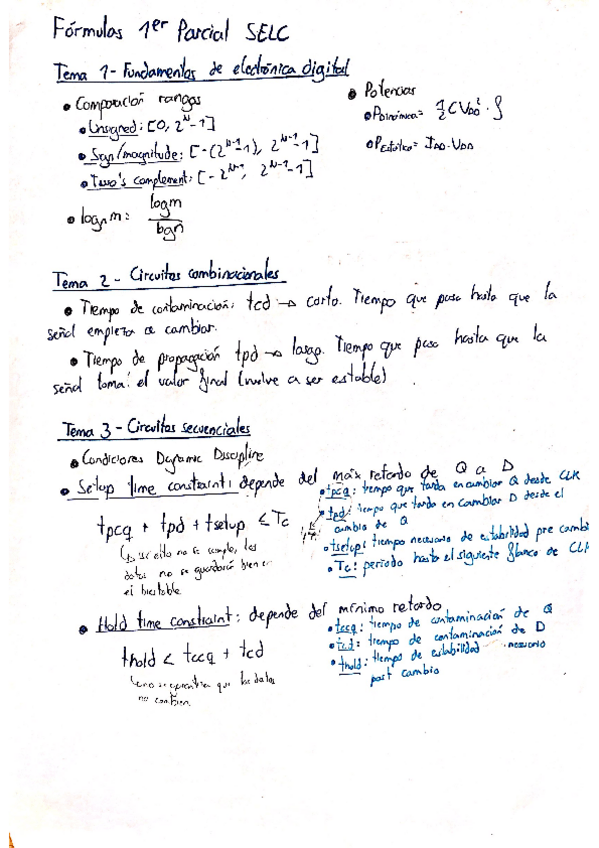 Fórmulas 1er Parcial SELC
Tema 1- Fundamentos de electrónica digital
• Comparación rangos
• Unsigned: [0, 2^N-1]
• Sign/magnitude: [-(2^N-1-1), 2^N-1-1]
• Two's complement: [-2^N-1, 2^N-1-1]
• log_n m: logm / logn
• Potencias
• PDinámica = 1/2 C VDD² · f
• PEstática = IDD · VDD
Tema 2 - Circuitos combinacionales
• Tiempo de contaminación: tcd → corto. Tiempo que pasa hasta que la
señal empieza a cambiar.
• Tiempo de propagación tpd → largo. Tiempo que pasa hasta que la
señal toma el valor final (vuelve a ser estable)
Tema 3 - Circuitos secuenciales
• Condiciones Dynamic Discipline
• Setup time constraint: depende del máx retardo de Q a D
tpcq + tpd + tsetup ≤ Tc
↳ si esto no se cumple, los
datos no se guardarán bien en
el biestable
• tpcq: tiempo que tarda en cambiar Q desde CLK
• tpd: tiempo que tarda en cambiar D desde el
cambio de Q
• tsetup: tiempo necesario de estabilidad pre cambi
• Tc: periodo hasta el siguiente flanco de CLK
• Hold time constraint: depende del mínimo retardo
thold < tccq + tcd
que los datos
no cambien
• tccq: tiempo de contaminación de Q
• tcd: tiempo de contaminación de D
• thold: tiempo de estabilidad necesario
post cambio